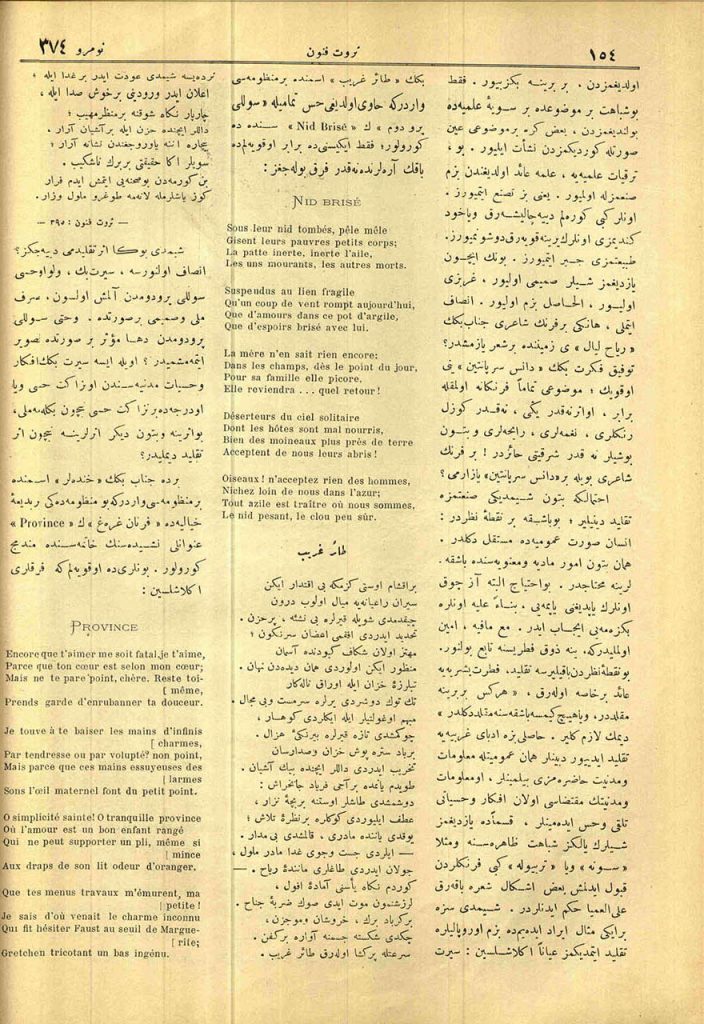 ١٥٤
ثروت فنون
نومرو ٣٧٤
اولديغمزدن ، بر برينه بكزييور . فقط
بوشباهت بر موضوعده بر سويۀ علميه‌ده
بولنديغمزدن ، بعض كره بر موضوعى عين
صورتله كورديكمزدن نشأت ايليور . بو ،
ترقيات علميه‌يه ، علمه عائد اولديغندن بزم
صنعمزله اولميور . يعنى بز تصنع ايتميورز .
اونلر كبى كوره‌لم دييه چاليشه‌رق وياخود
كنديمزى اونلرك يرينه قويه‌رق دوشونميورز.
طبيعتمزى جبر ايتميورز . بونك ايچون
يازديغمز شيلر صميمى اوليور ، غريزى
اوليور ، الحاصل بزم اوليور . انصاف
ايتملى ، هانكى بر فرنك شاعرى جناب بكك
« رياح ليال » ى زميننده بر شعر يازمشدر؟
توفيق فكرت بكك « دانس سرپانتين » ينى
اوقويك ؛ موضوعى تماماً فرنكانه اولمقله
برابر ، او اثر نه‌قدر يكى ، نه‌قدر كوزل
رنكلرى ، نغمه‌لرى ، رايحه‌لرى و بتون
بوشيلر نه قدر شرقيتى حائزدر ! بر فرنك
شاعرى بويله بر «دانس سرپانتين» يازارمى؟
احتمالكه بتون شيمديكى صنعتمزه
تقليد دينيلير ؛ بو باشقه بر نقطۀ نظردر :
انسان صورت عموميه‌ده مستقل دكلدر .
همان بتون امور ماديه ومعنويه‌سنده باشقه .
لرينه محتاجدر . بو احتياج البته آز چوق
اونلرك ياپديغنى ياپمه‌يى ، بناءً عليه اونلره
بكزه‌مه‌يى ايجاب ايدر . مع مافيه ، امين
اولمليدركه، ينه ذوق فطريسنه تابع بولنور.
بو نقطۀ نظردن باقيليرسه تقليد، فطرت بشريه‌يه
عائد بر خاصه اوله‌رق ، « هركس بر برينه
مقلددر، وياهيچ كيمسه باشقه‌سنه مقلد دكلدر »
ديمك لازم كلير . حاصلى بزه ادباى غربيه‌يه
تقليد ايدييور دينلر همان عموميتله معلومات
ومدنيت حاضره‌مزى بيلمينلر ، اومعلومات
ومدنيتك مقتضاسى اولان افكار وحسياتى
تلقى وحس ايده‌مينلر ، قسماًده يازديغمز
شيلرك يالكز شباهت ظاهره‌سنه ومثلا
« سونه » ويا « تريوله » كبى فرنكلردن
قبول ايدلمش بعض اشكال شعره باقه‌رق
على‌العميا حكم ايدنلردر . شيمدى سزه
برايكى مثال ايراد ايده‌يم‌ده بزم اوروپاليلره
تقليد ايتمديكمز عياناً اكلاشلسين : سيرت
بكك « طائر غريب » اسمنده بر منظومه‌سى
واردركه حاوى اولديغى حس تماميله «سوللى
پرودوم » ك « Nid Brisé » سنده ده
كورولور؛ فقط ايكيسنى‌ده برابر اوقويه‌لم‌ده
باقك آره‌لرنده نه‌قدر فرق بوله‌جغز :
NID BRISÉ
Sous leur nid tombés, pêle mêle
Gisent leurs pauvres petits corps;
La patte inerte, inerte l'aile,
Les uns mourants, les autres morts.
Suspendus au lien fragile
Qu'un coup de vent rompt aujourd'hui,
Que d'amours dans ce pot d'argile,
Que d'espoirs brisé avec lui.
La mère n'en sait rien encore;
Dans les champs, dès le point du jour,
Pour sa famille elle picore,
Elle reviendra ... quel retour!
Déserteurs du ciel solitaire
Dont les hôtes sont mal nourris,
Bien des moineaux plus près de terre
Acceptent de nous leurs abris!
Oiseaux! n'acceptez rien des hommes,
Nichez loin de nous dans l'azur;
Tout azile est traître où nous sommes,
Le nid pesant, le clou peu sûr.
طائر غريب
براقشام اوستى كزمكه بى اقتدار ايكن
سيران راغبانه‌يه ميال اولوب درون
چيقمدمدى شويله قيرلره بى نشئه ، پرحزن .
تحديد ايدردى افقمى اغصان سرنكون ؛
مهتز اولان شكاف كبودنده آسمان
منظور ايكن اولوردى همان ديده‌دن نهان .
تيلرزۀ خزان ايله اوراق ناله‌كار
تك توك دوشردى يرلره سرمست وبى مجال .
مبهم اوغولتيلر ايله ايكلردى كوهسار ،
چوكمشدى تازه قيرلره بيرنكئ هزال .
برباد ستره پوش خزان وصدارسان
تخريب ايدردى داللر ايچنده بيك آشيان .
طويدم يانمده برآجى فرياد جانخراش :
دوشمشدى طاشلر اوستنه بربچۀ نزار ،
عطف ايليوردى كوكلره برنظرۀ تلاش ؛
يوقدى ياننده مادرى ، قالمشدى بى مدار .
— ايلردى جست وجوى غدا مادر ملول ،
جولان ايدردى طاغلرى مانندۀ رياح . —
كوردم نكاه يأسنى آمادۀ افول ،
لرزشنمون موت ايدى صوك ضربۀ جناح .
بركرباد برك ، خروشان وموجزن ،
چكدى شكسته جسمنه آواره بركفن .
سرعتله پركشا اوله‌رق طائر غريب .
نرده‌يسه شيمدى عودت ايدر بر غدا ايله ؛
اعلان ايدر ورودينى برخوش صدا ايله ،
چارپار نكاه شوقنه برمنظرمهيب ؛
داللر ايچنده حزن ايله برآشيان آرار ،
بيچاره آننه ياوروجغندن نشانه آرار ؛
سويلر اكا حقيقتى بربرك ناشكيب .
بن كورمه‌دن بوصحنه‌يى ايتمش ايدم فرار
كوز ياشلرمله لانه‌مه طوغرو ملول وزار.
— ثروت فنون : ٣٩٥ —
شيمدى بوكا اثر تقليدمى دييه‌جكز؟
انصاف اولنورسه ، سيرت بك ، ولواوحسى
سوللى پرودومدن آلمش اولسون ، صرف
ملى وصميمى برصورتده . وحتى سوللى
پرودومدن دها مؤثر بر صورتده تصوير
ايتمه‌مشميدر ؟ اويله ايسه سيرت بك‌افكار
وحسيات مدنيه‌سندن اونزاكت حسى ويا
اودرجه‌ده برنزاكت حسى نيچون بكله‌مه‌ملى،
بواثرينه وبتون ديكر اثرلرينه نيچون اثر
تقليد ديمليدر؟
برده جناب بكك « خنده‌لر » اسمنده
برمنظومه‌سى واردركه بو منظومه‌ده‌كى ربديعۀ
خياليه‌ده « فرنان غره‌غ » ك « Province »
عنوانلى نشيده‌سنك خاتمه‌سنده مندمج
كورولور . بونلرى‌ده اوقويه‌لم كه فرقلرى
اكلاشلسين :
PROVINCE
Encore que t'aimer me soit fatal, je t'aime,
Parce que ton cœur est selon mon cœur;
Mais ne te pare point, chère. Reste toi-
[ même,
Prends garde d'enrubanner ta douceur.
Je touve à te baiser les mains d'infinis
[ charmes,
Par tendresse ou par volupté? non point,
Mais parce que ces mains essuyeuses des
[ larmes
Sons l'œil maternel font du petit point.
O simplicité sainte! O tranquille province
Où l'amour est un bon enfant rangé
Qui ne peut supporter un pli, même si
[ mince
Aux draps de son lit odeur d'oranger.
Que tes menus travaux m'émurent, ma
[ petite !
Je sais d'où venait le charme inconnu
Qui fit hésiter Faust au seuil de Margue-
[ rite;
Gretchen tricotant un bas ingénu.